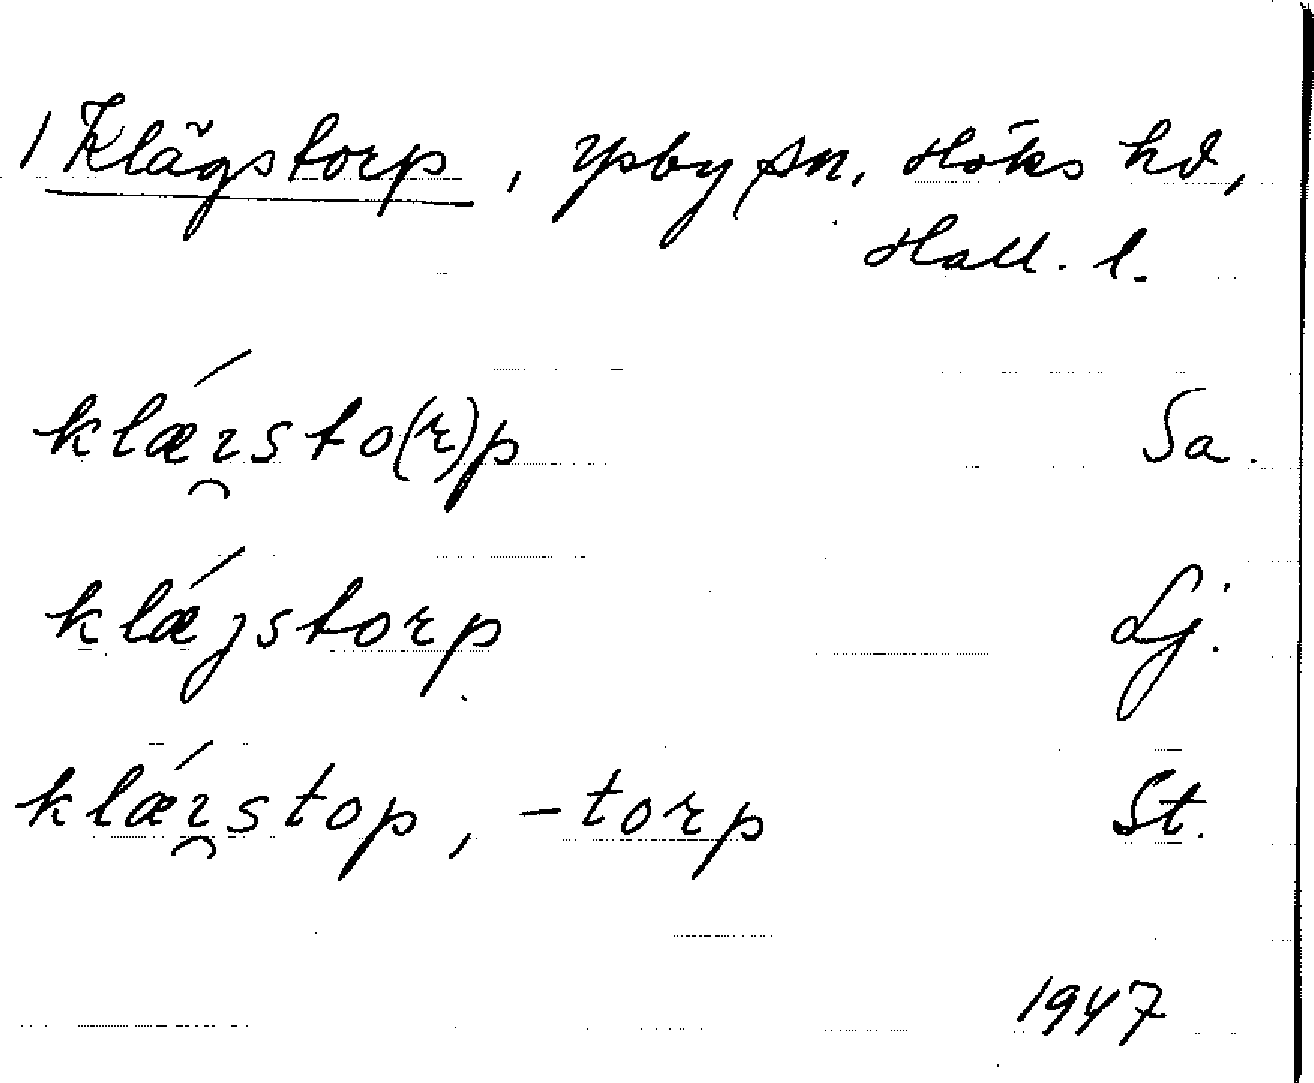 1 Klägstorp, Ysby sn, Höks hd,
Hall. l.
klǽı̯sto(r)p Sa.
klǽjstorp Lj.
klǽı̯stop, -torp St.
1947